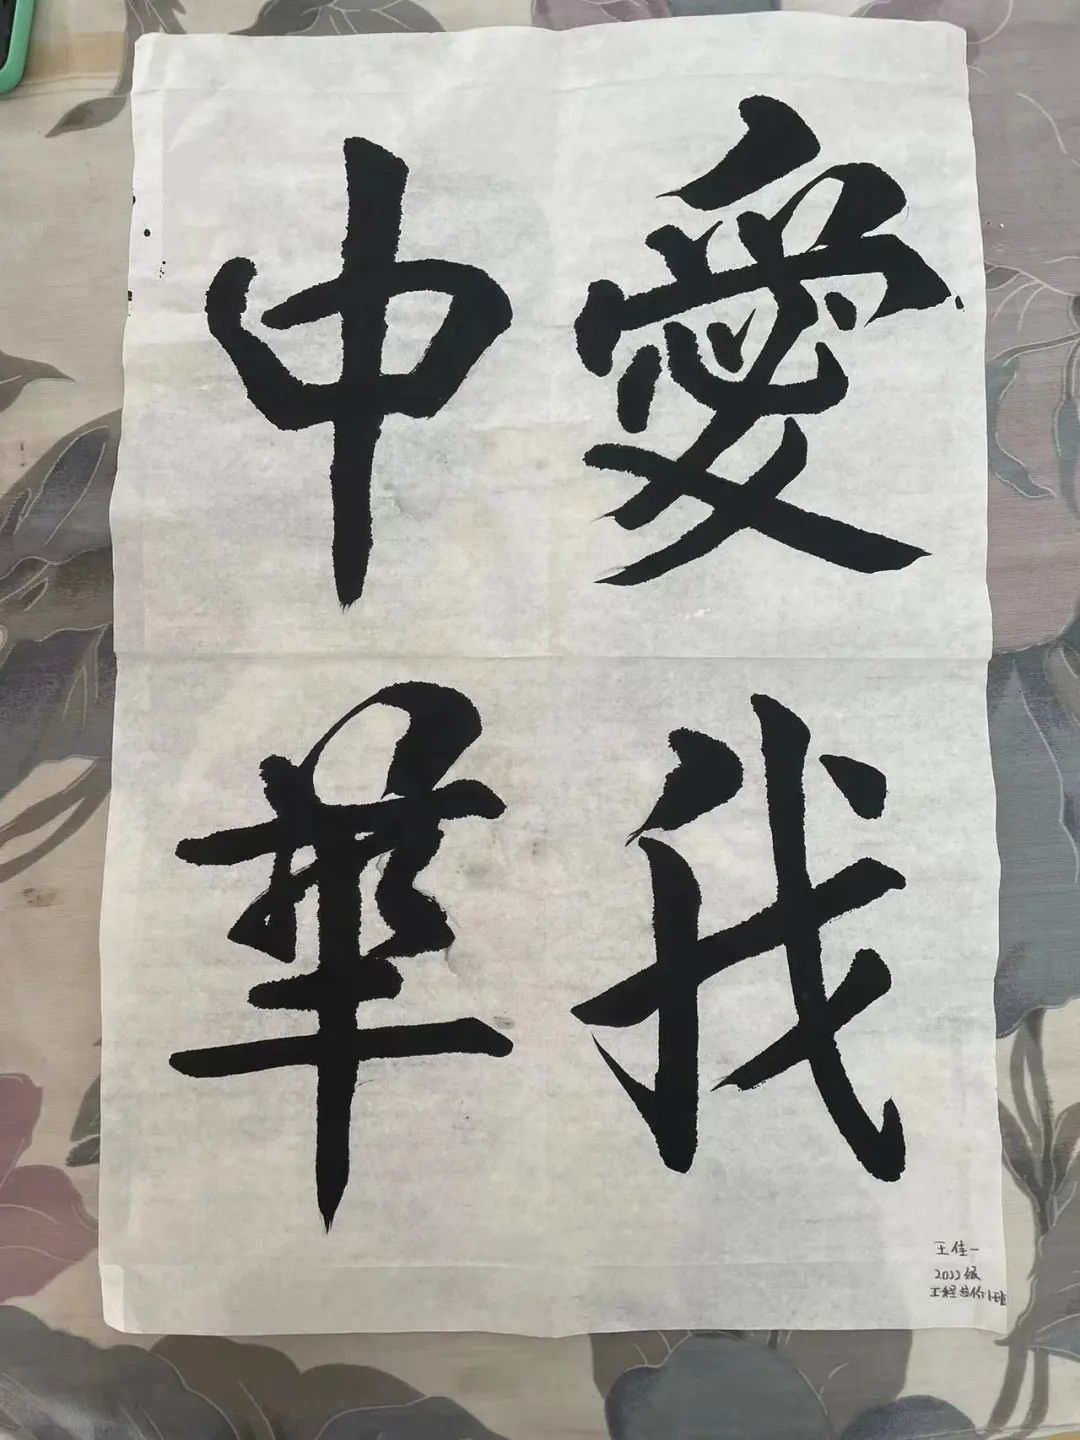 愛我
中華
王佳一
2022级
工程造价1班